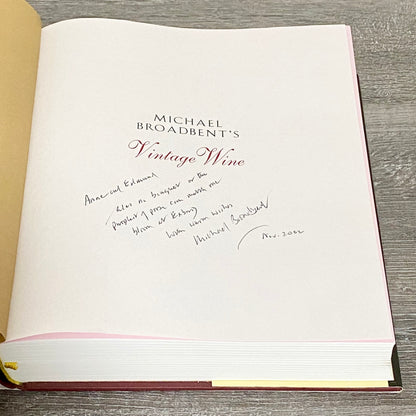 MICHAEL
BROADBENT'S
Vintage Wine
Anne and Edmund
Alas no bouquet or the
purplest of prose can match one
bloom at Exbury
With warm wishes
Michael Broadbent
Nov. 2002